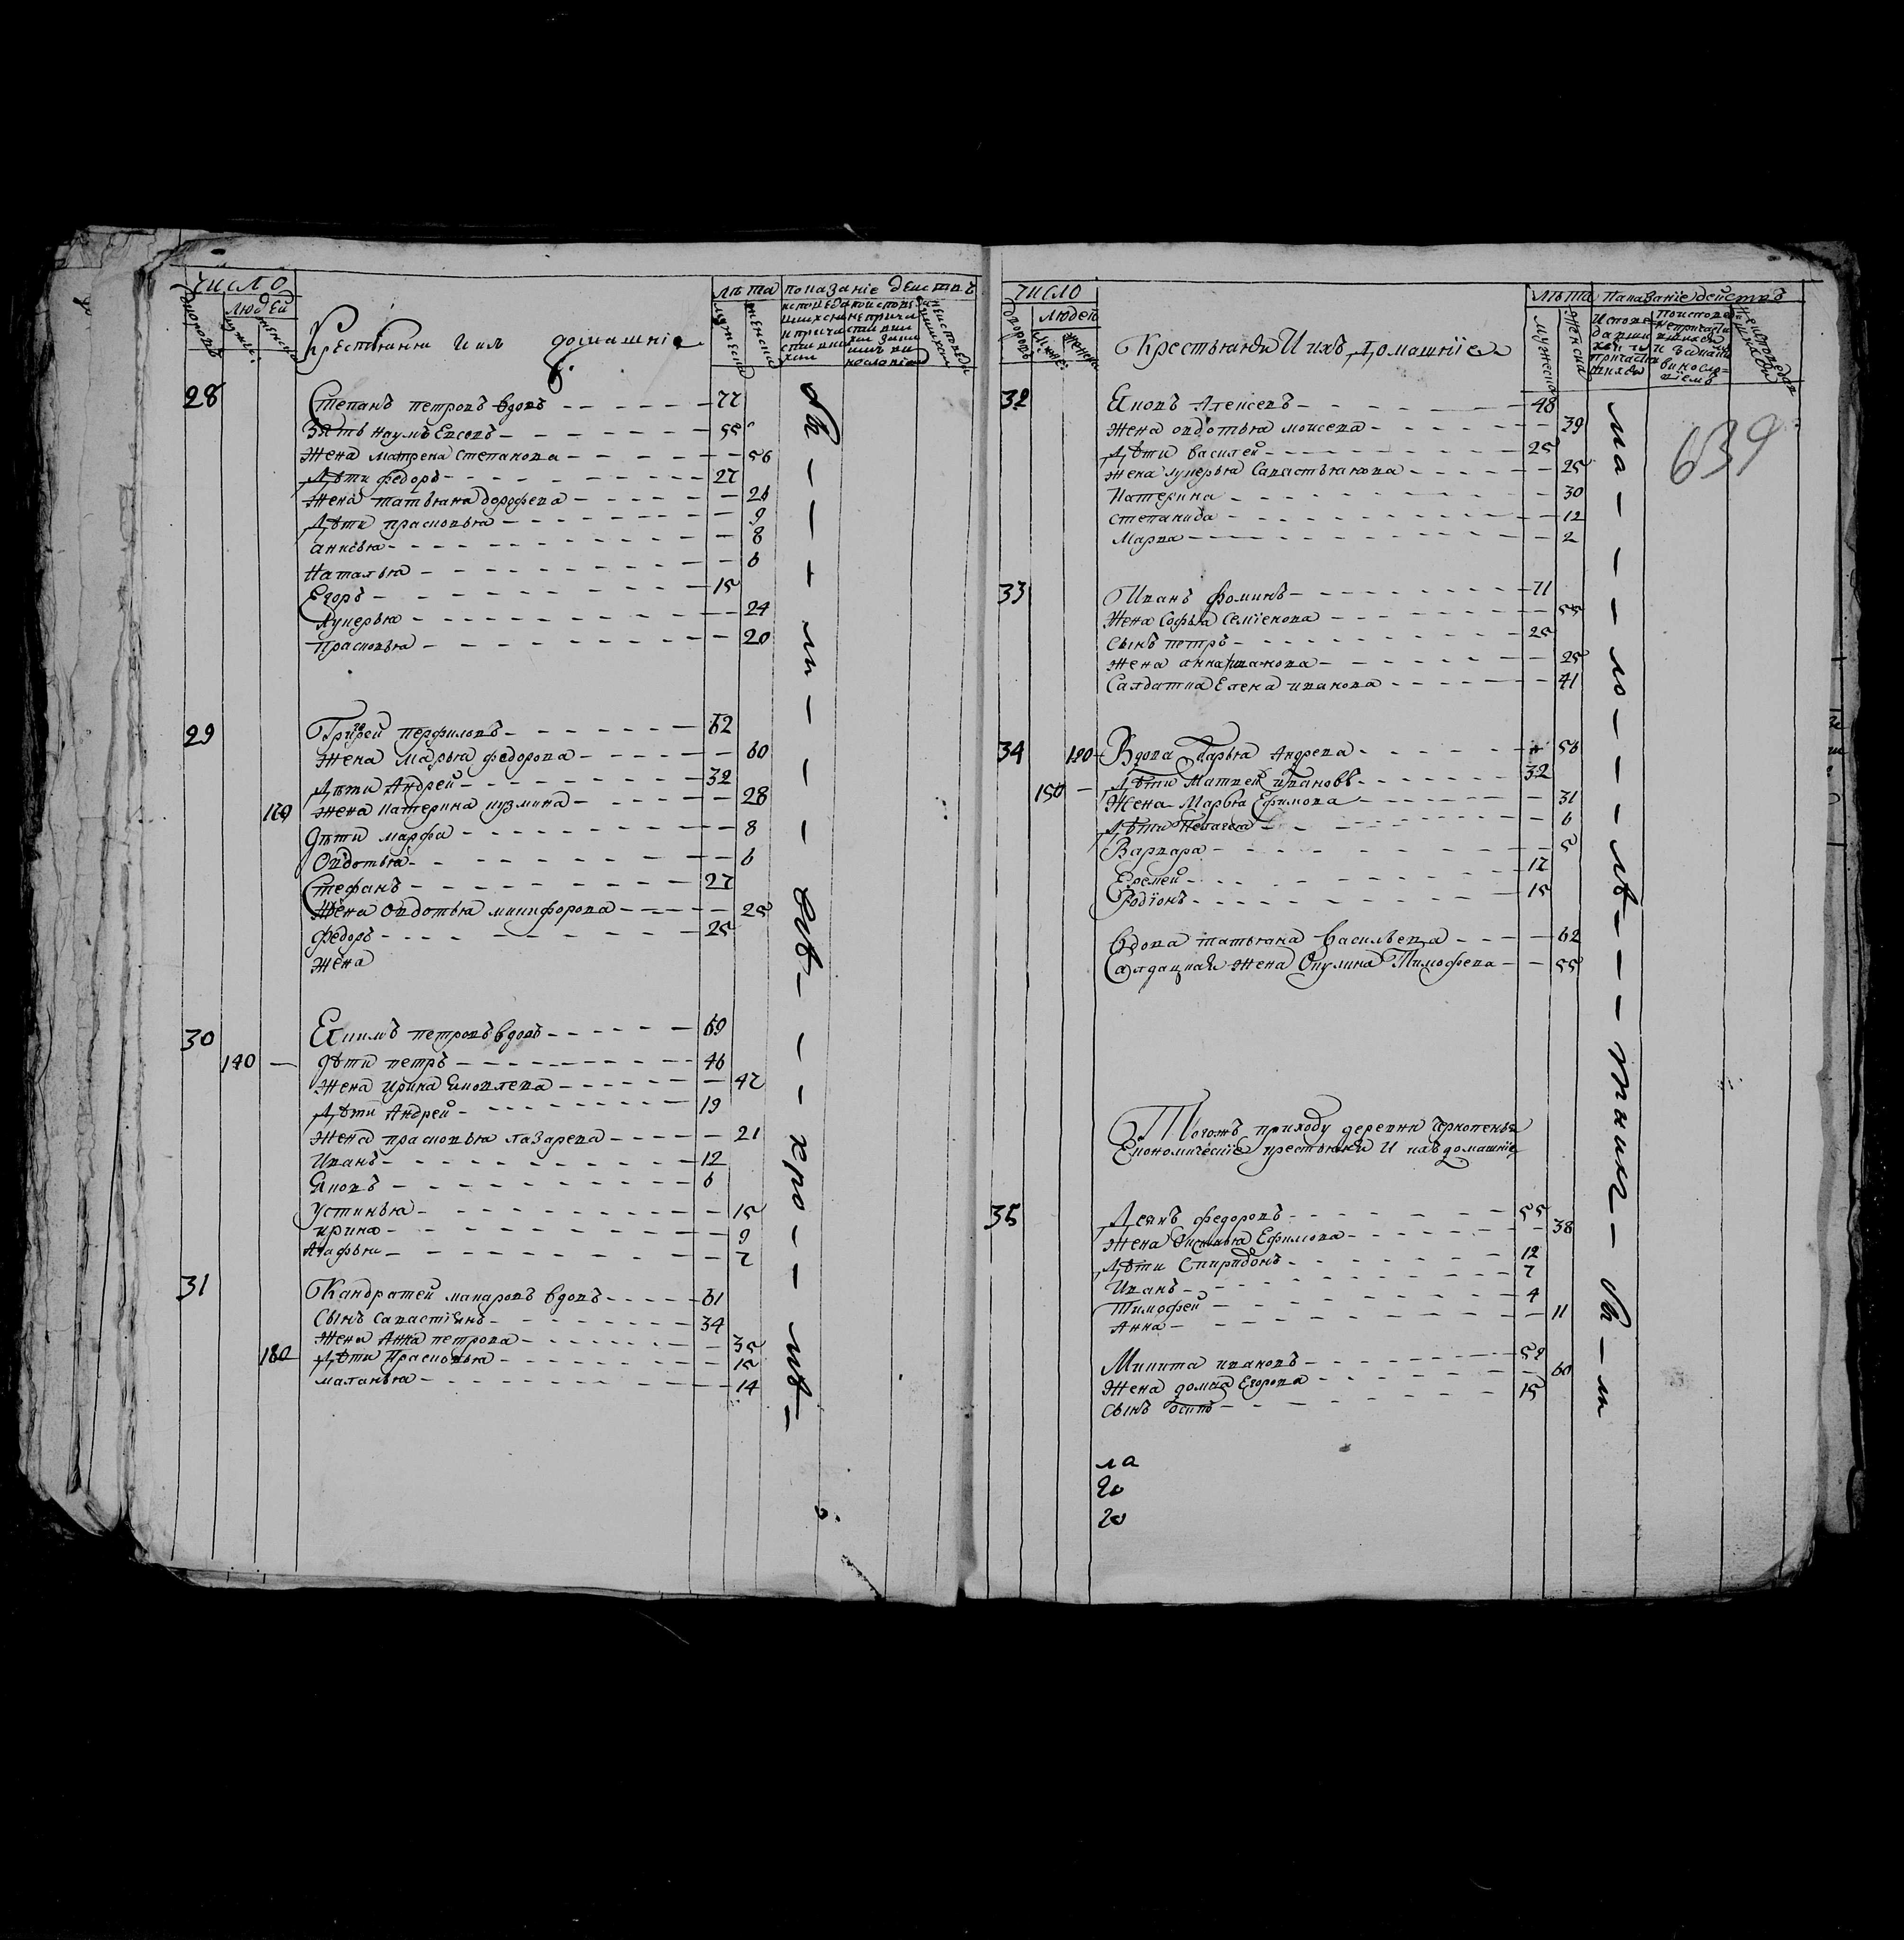 число
людей
лѣта показаніе деиствъ
дворовъ
мужес:
женска
Крестьяня и ихъ домашніе
мужеска
женска
28 Степанъ петровъ вдовъ 77
Зять наумъ Евсевъ 55
Жена матрена степанова 56
Дѣти федоръ 27
Жена татьяна дорофева 26
Дѣти прасковья 9
анисья 8
Наталья 6
Егоръ 15
Лукерья 24
прасковья 20
29 Григорей перфиловъ 62
Жена Марья федорова 60
Дѣти Андрей 32
Жена катерина кузмина 28
Дѣти марфа 8
Овдотья 6
Стефанъ 27
Жена Овдотья микифорова 25
Федоръ 25
Жена
30 Екимъ петровъ вдовъ 69
140 Дѣти петръ 46
Жена Ирина 47
Дѣти Андрей 19
Жена прасковья лазарева 21
Иванъ 12
Яковъ 6
Устинья 15
ирина 9
Агафья 7
31 Кандратей макаровъ вдовъ 61
Сынъ савастіянъ 34
Жена Анна петрова 35
180 Дѣти Прасковья 15
маланья 14
число
людей
лѣта показаніе действъ
дворовъ
мужес:
женска
Крестьяня И ихъ домашніе
мужеска
женска
639
32 Яковъ Алексевъ 48
Жена овдотья моисева 39
Дѣти василей 25
Жена лукерья Савастьянова 25
Катерина 30
степанида 12
Марва 2
33 Иванъ фоминъ 71
Жена Софья Семіенова 55
Сынъ петръ 25
Жена анна иванова 25
Салдатка Елена иванова 41
34 Вдова Дарья Андрева 56
150 Дѣти Матвей ивановъ 32
Жена Марья Ефимова 31
Дѣти Пелагея 6
Варвара 5
Еремей 17
Родіонъ 15
Вдова татьяна васильева 62
Салдацкая Жена Окулина Тимофева 55
Тогожъ приходу деревни
Економическіе крестьяня И ихъ домашніе
35 Деянъ федоровъ 55
Жена Ефимова 38
Дѣти Спиридонъ 12
Иванъ 7
Тимофей 4
Анна 11
Микита ивановъ 59
Жена домна Егорова 60
Сынъ осипъ 15
ла
20
20